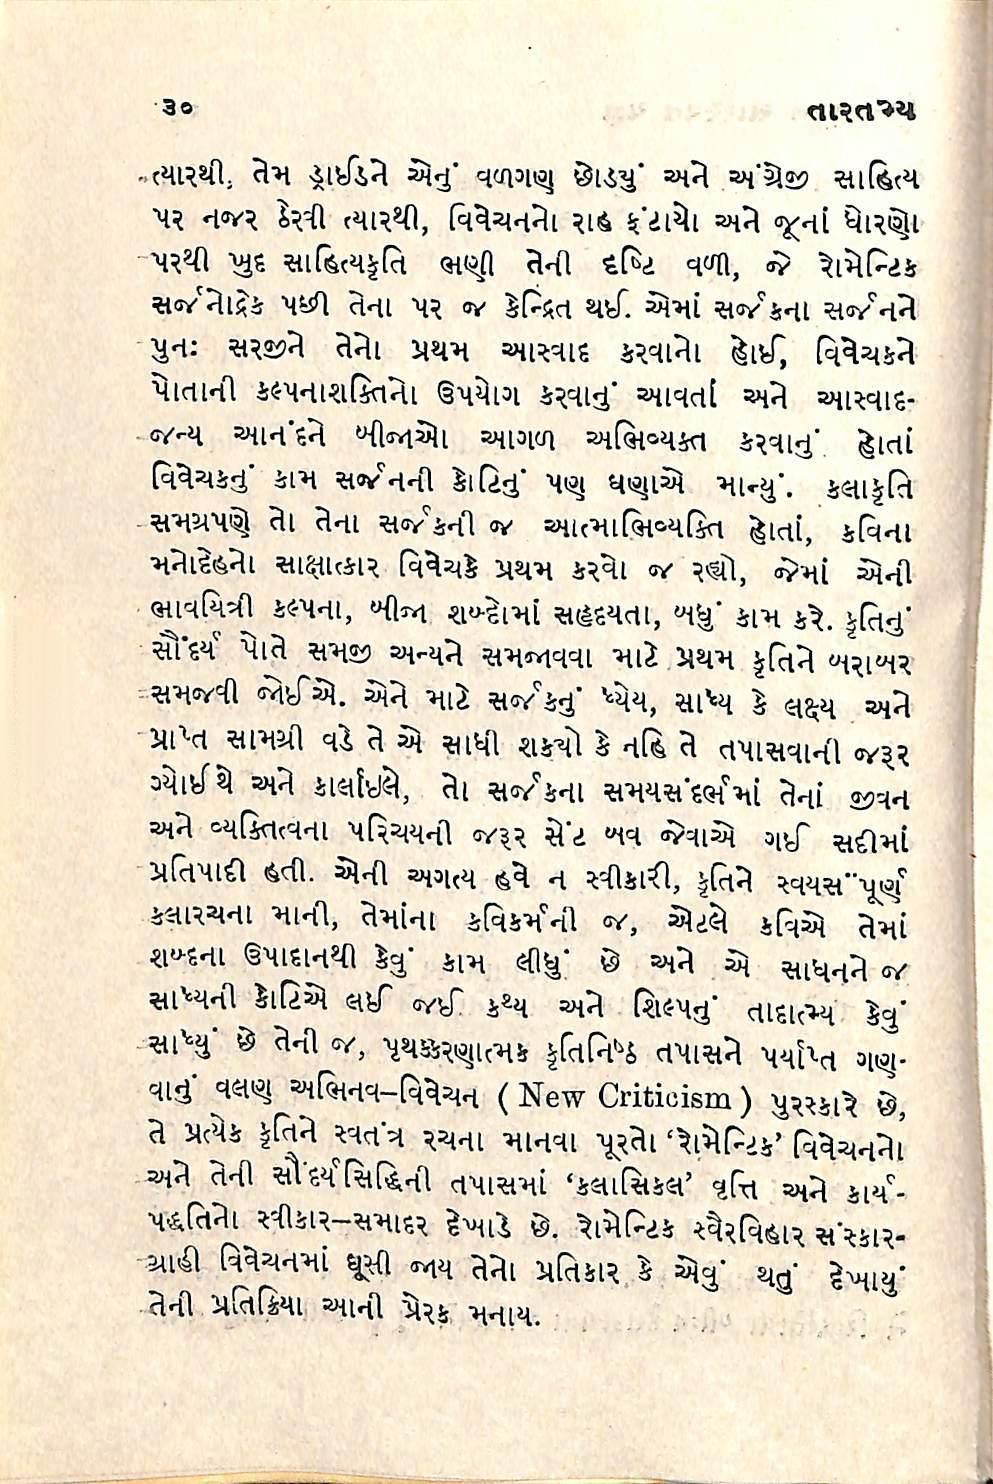 ૩૦ તારતમ્ય
ત્યારથી, તેમ ડ્રાઈડને એનું વળગણ છોડ્યું અને અંગ્રેજી સાહિત્ય
પર નજર ઠેરવી ત્યારથી, વિવેચનનો રાહ ફંટાયો અને જૂનાં ધોરણો
પરથી ખુદ સાહિત્યકૃતિ ભણી તેની દૃષ્ટિ વળી, જે રોમેન્ટિક
સર્જનોદ્રેક પછી તેના પર જ કેન્દ્રિત થઈ. એમાં સર્જકના સર્જનને
પુનઃ સરજીને તેનો પ્રથમ આસ્વાદ કરવાનો હોઈ, વિવેચકને
પોતાની કલ્પનાશક્તિનો ઉપયોગ કરવાનું આવતાં અને આસ્વાદ-
જન્ય આનંદને બીજાઓ આગળ અભિવ્યક્ત કરવાનું હોતાં
વિવેચકનું કામ સર્જનની કોટિનું પણ ઘણાએ માન્યું. કલાકૃતિ
સમગ્રપણે તો તેના સર્જકની જ આત્માભિવ્યક્તિ હોતાં, કવિના
મનોદેહનો સાક્ષાત્કાર વિવેચકે પ્રથમ કરવો જ રહ્યો, જેમાં એની
ભાવયિત્રી કલ્પના, બીજા શબ્દોમાં સહૃદયતા, બધું કામ કરે. કૃતિનું
સૌંદર્ય પોતે સમજી અન્યને સમજાવવા માટે પ્રથમ કૃતિને બરાબર
સમજવી જોઈએ. એને માટે સર્જકનું ધ્યેય, સાધ્ય કે લક્ષ્ય અને
પ્રાપ્ત સામગ્રી વડે તે એ સાધી શક્યો કે નહિ તે તપાસવાની જરૂર
ગ્યોઈથે અને કાર્લાઇલે, તો સર્જકના સમયસંદર્ભમાં તેનાં જીવન
અને વ્યક્તિત્વના પરિચયની જરૂર સેંટ બવ જેવાએ ગઈ સદીમાં
પ્રતિપાદી હતી. એની અગત્ય હવે ન સ્વીકારી, કૃતિને સ્વયસંપૂર્ણ
કલારચના માની, તેમાંના કવિકર્મની જ, એટલે કવિએ તેમાં
શબ્દના ઉપાદાનથી કેવું કામ લીધું છે અને એ સાધનને જ
સાધ્યની કોટિએ લઈ જઈ કથ્ય અને શિલ્પનું તાદાત્મ્ય કેવું
સાધ્યું છે તેની જ, પૃથક્કરણાત્મક કૃતિનિષ્ઠ તપાસને પર્યાપ્ત ગણ-
વાનું વલણ અભિનવ-વિવેચન (New Criticism) પુરસ્કારે છે,
તે પ્રત્યેક કૃતિને સ્વતંત્ર રચના માનવા પૂરતો ‘રોમેન્ટિક’ વિવેચનનો
અને તેની સૌંદર્યસિદ્ધિની તપાસમાં ‘કલાસિકલ’ વૃત્તિ અને કાર્ય-
પદ્ધતિનો સ્વીકાર-સમાદર દેખાડે છે. રોમેન્ટિક સ્વૈરવિહાર સંસ્કાર-
ગ્રાહી વિવેચનમાં ઘૂસી જાય તેનો પ્રતિકાર કે એવું થતું દેખાયું
તેની પ્રતિક્રિયા આની પ્રેરક મનાય.